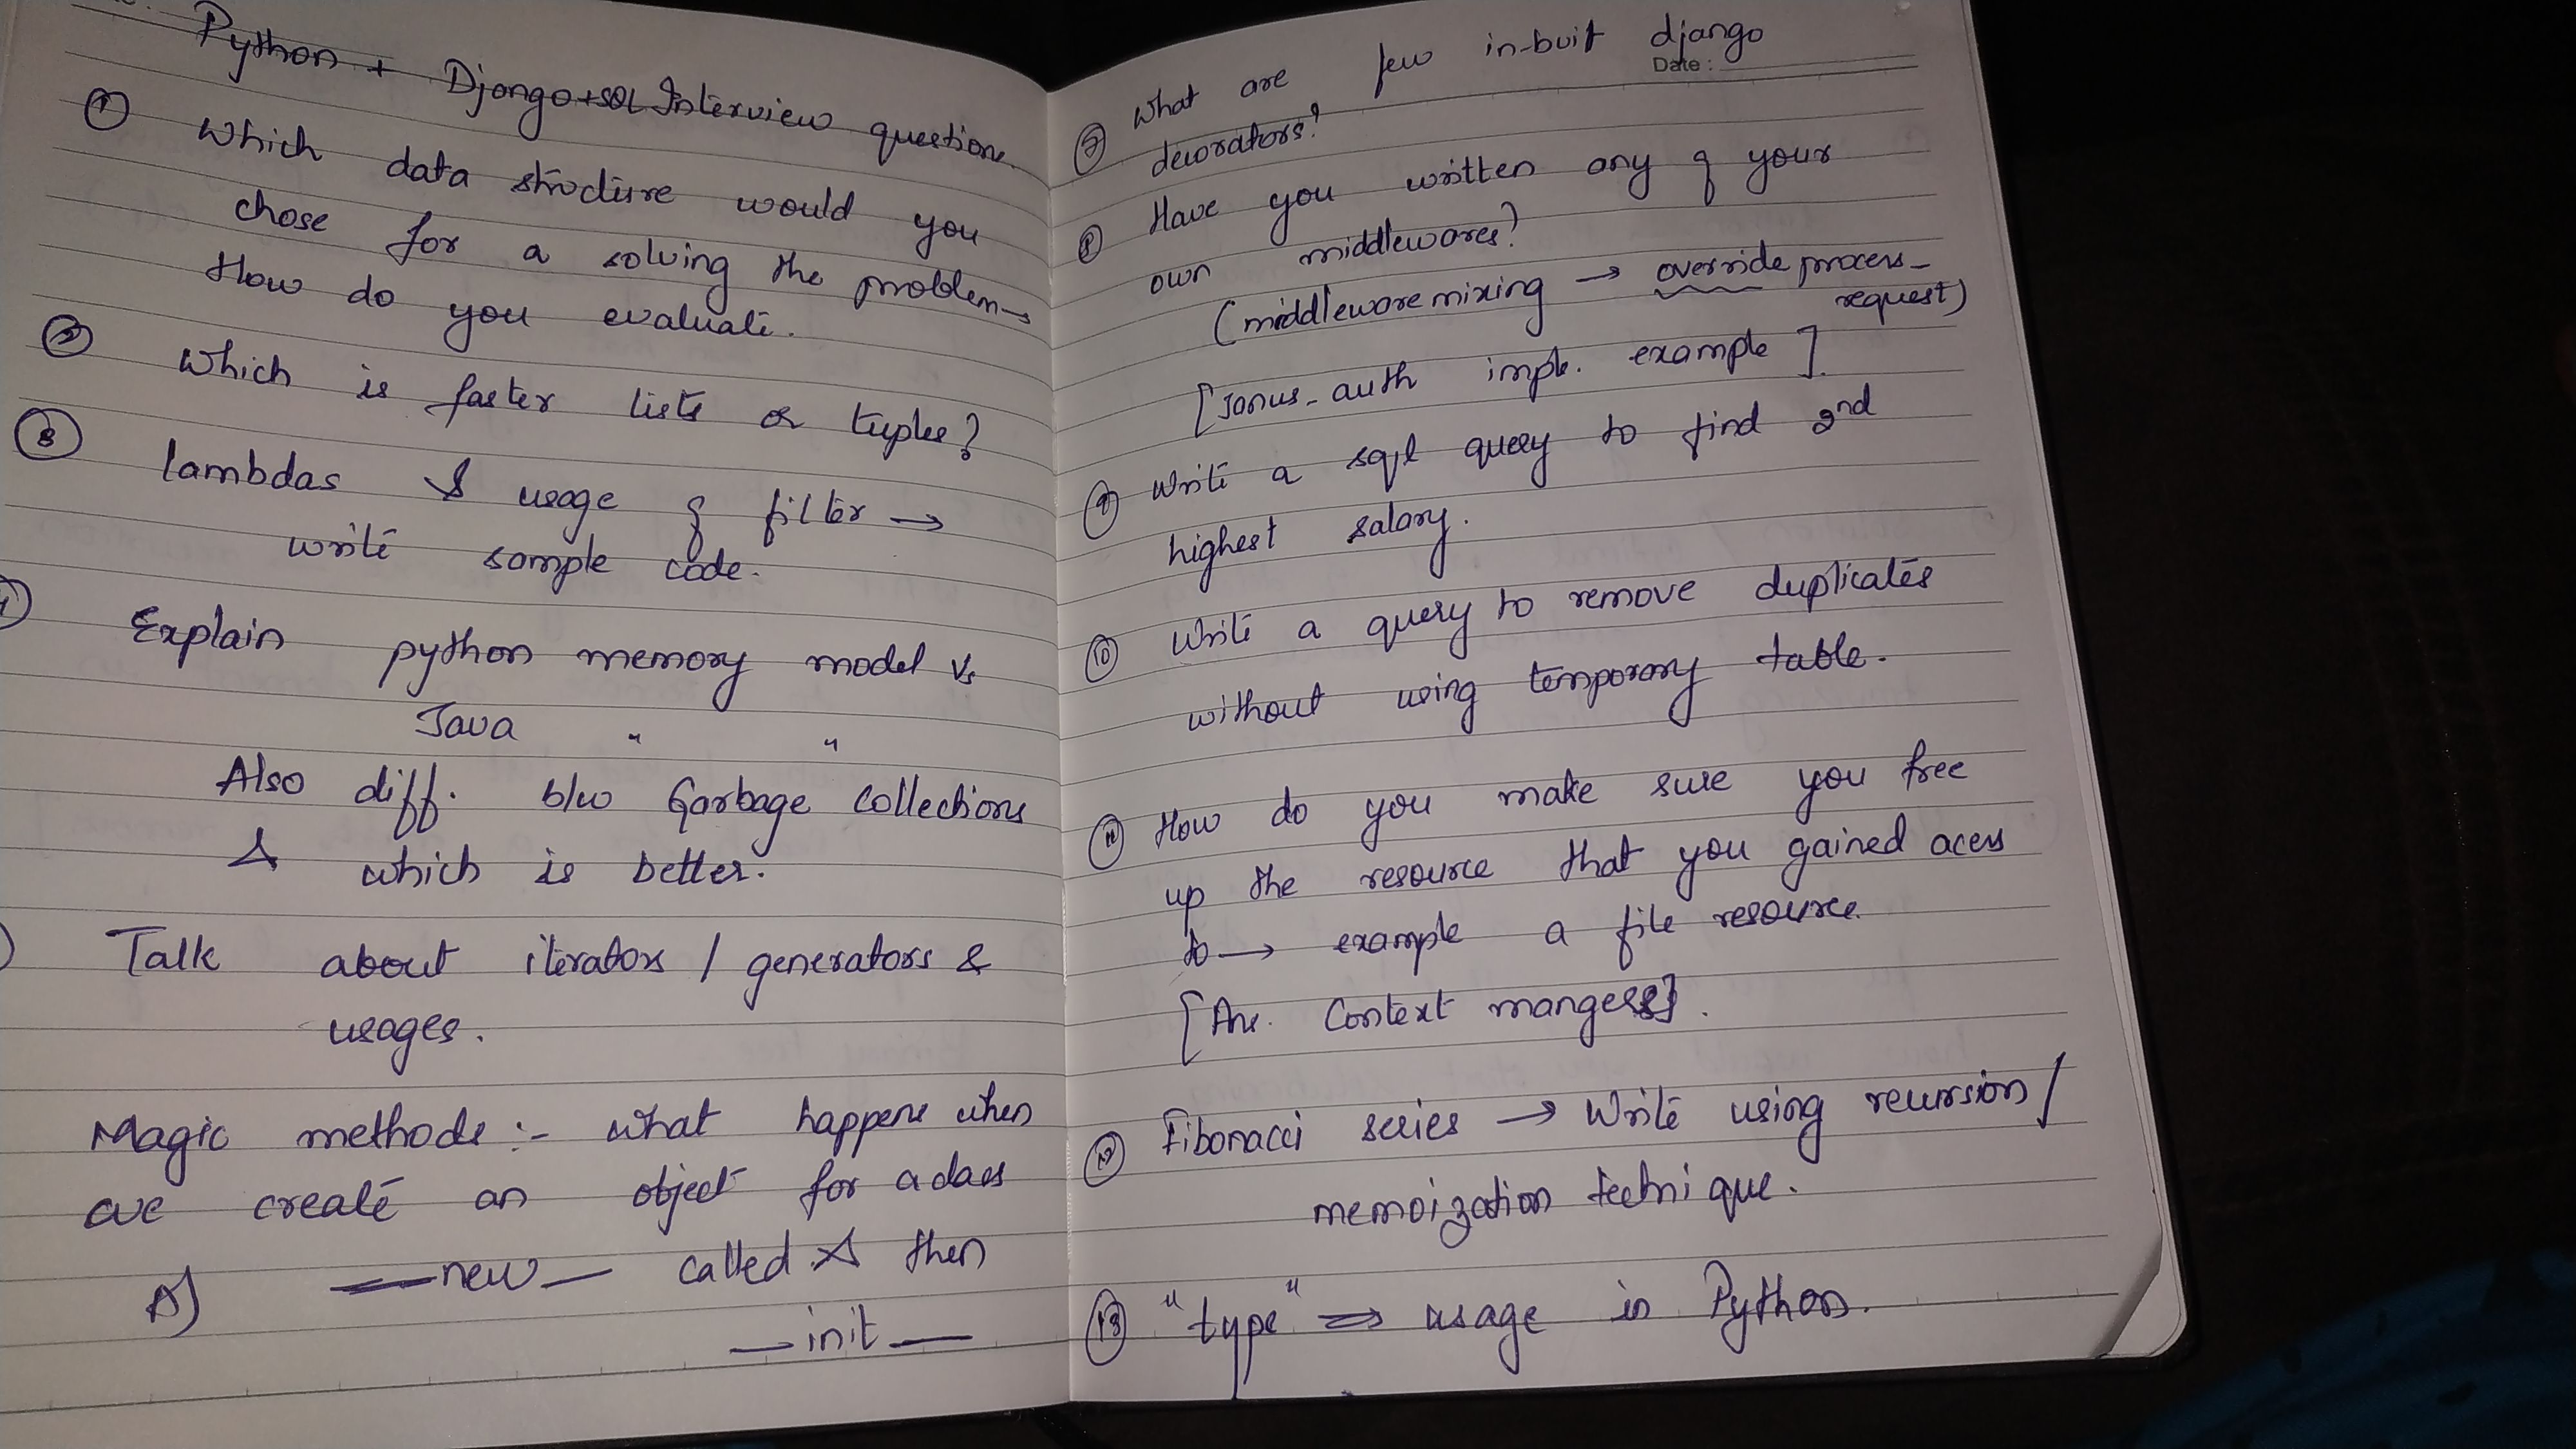 Python + Django + SQL Interview question
① Which data structure would you
chose for a solving the problem →
How do you evaluate.
② Which is faster lists or tuples?
③ lambdas & usage of filter →
write sample code.
Explain python memory model vs
Java " "
Also diff. b/w Garbage collections
& which is better.
Talk about iterators / generators &
usages.
Magic methods :- what happens when
we create an object for a class
A) __new__ called & then
__init__
⑦ What are few in-buit django
Date:
decorators?
⑧ Have you written any of your
own middlewares?
(middleware mixing → override process-
request)
[Jonus-auth imple. example]
⑨ Write a sql query to find 2nd
highest salary.
⑩ Write a query to remove duplicates
without using temporary table.
⑪ How do you make sure you free
up the resource that you gained acess
to → example a file resource.
[Ans. Context manager].
⑫ Fibonacci series → Write using recursion /
memoization technique.
⑬ "type" ⇒ usage in Python.